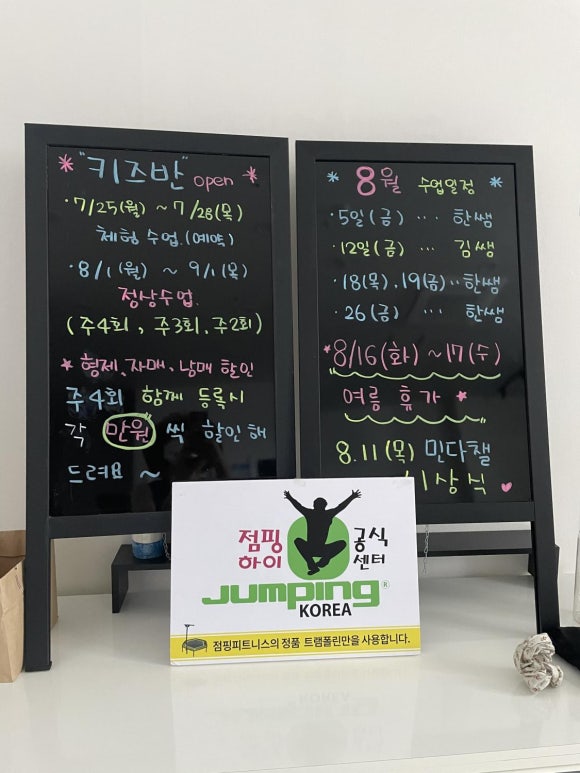 * "키즈반" open *
· 7/25(월) ~ 7/28(목)
체험 수업.(예약)
· 8/1(월) ~ 9/1(목)
정상수업.
(주4회, 주3회, 주2회)
* 형제, 자매, 남매 할인
주4회 함께 등록시
각 만원 씩 할인해
드려요 ~
* 8월 수업일정 *
· 5일(금) ... 한쌤
· 12일(금) ... 김쌤
· 18(목), 19(금).. 한쌤
· 26(금) ... 한쌤
* 8/16(화) ~ 17(수)
여름 휴가 *
8.11(목) 민다챌
시상식 ♥
점핑 공식
하이 센터
Jumping®
KOREA
점핑피트니스의 정품 트램폴린만을 사용합니다.